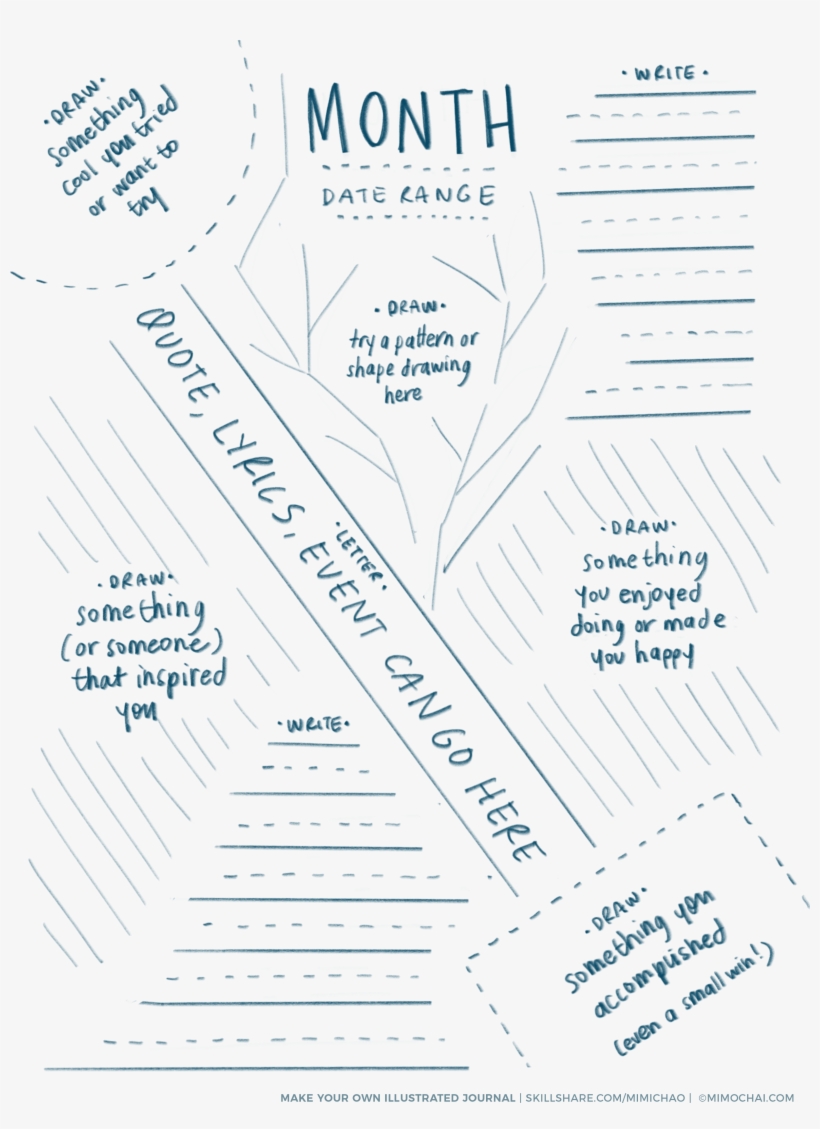 MONTH
DATE RANGE
• DRAW •
something
cool you tried
or want to
try
• WRITE •
• DRAW •
try a pattern or
shape drawing
here
QUOTE, LYRICS, EVENT CAN GO HERE
• LETTER •
• DRAW •
something
you enjoyed
doing or made
you happy
• DRAW •
something
(or someone)
that inspired
you
• WRITE •
• DRAW •
something you
accomplished
(even a small win!)
MAKE YOUR OWN ILLUSTRATED JOURNAL | SKILLSHARE.COM/MIMICHAO | ©MIMOCHAI.COM